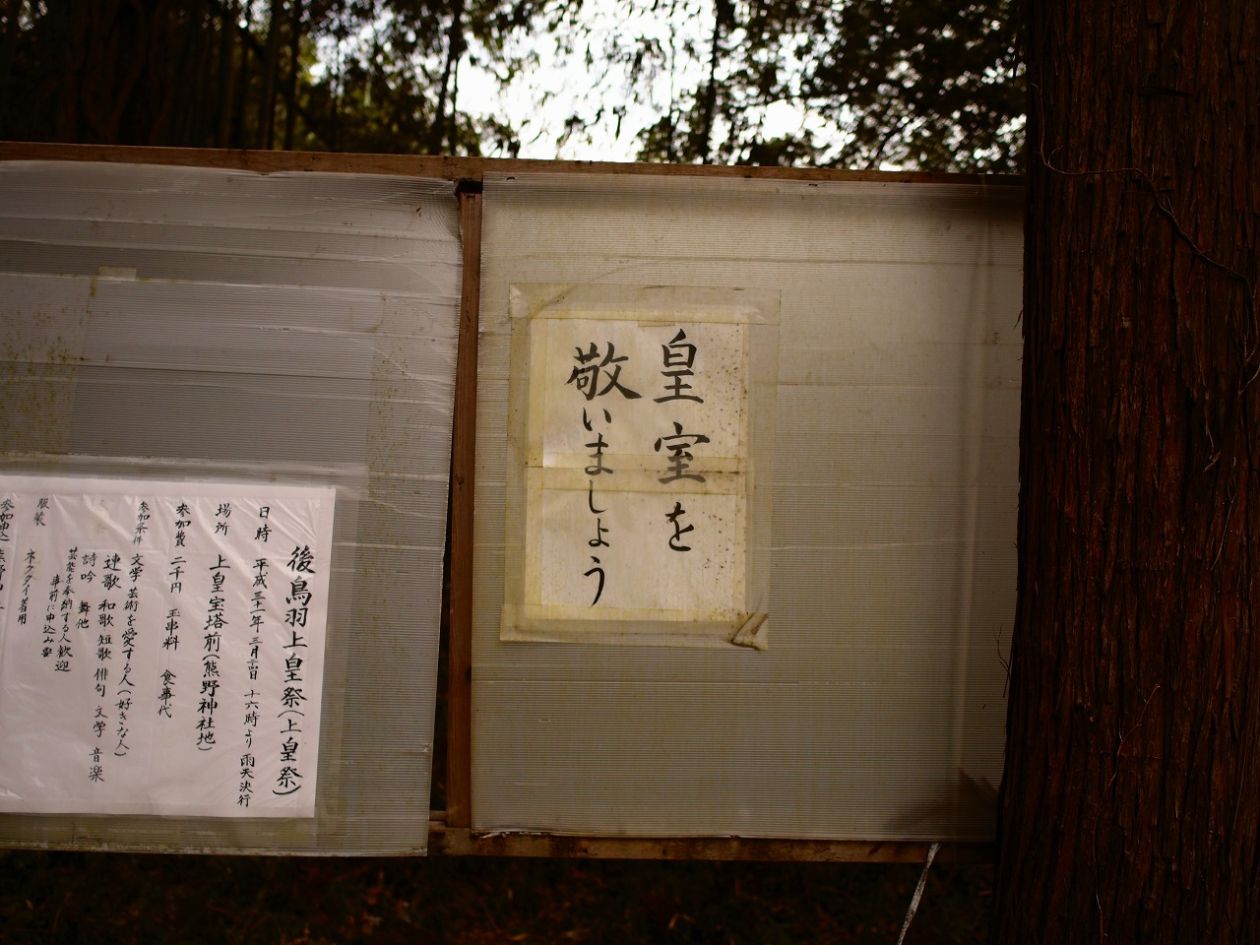 皇室を
敬いましょう
後鳥羽上皇祭(上皇祭)
日時 平成三十一年 三月二四日 十六時より 雨天決行
場所 上皇宝塔前(熊野神社地)
参加費 二千円 玉串料 食事代
参加条件 文学 芸術を愛する人(好きな人)
連歌 和歌 短歌 俳句 文学 音楽
詩吟 舞他
芸能を奉納する人歓迎
事前に申込み要
服装 ネクタイ着用
参加申込